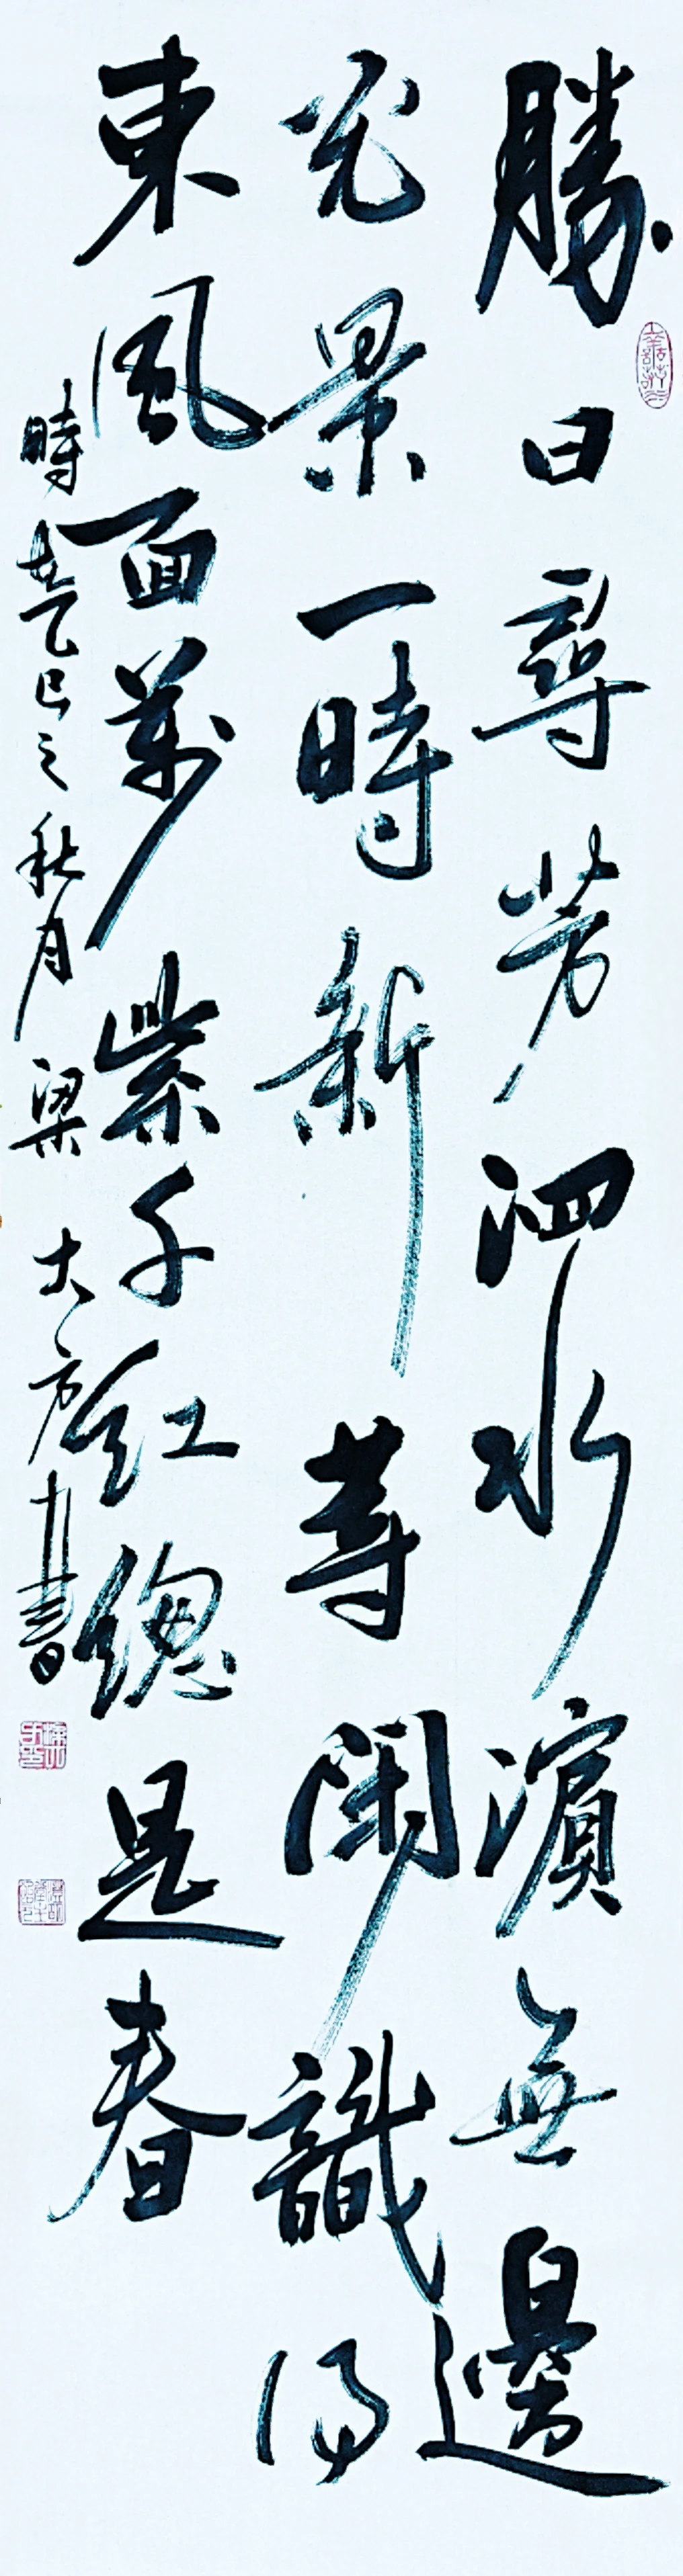 勝日尋芳泗水濱無邊
光景一時新等閑識得
東風面萬紫千紅總是春
時在乙巳之秋月梁大方書